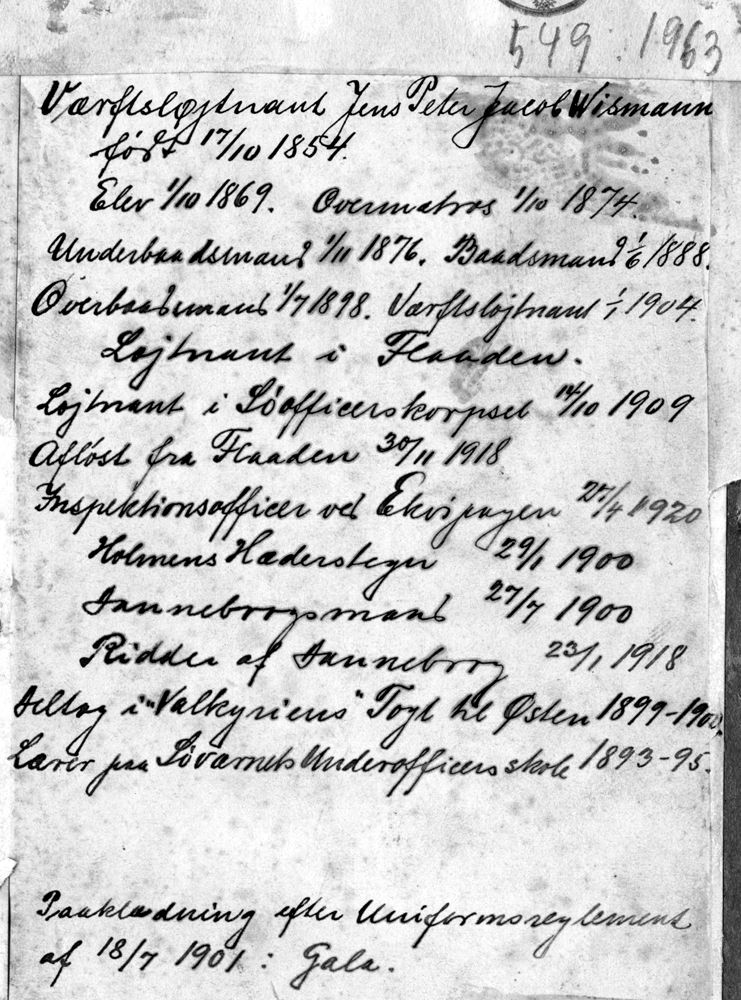 549. 1963
Værftsløjtnant Jens Peter Jacob Wismann
født 17/10 1854.
Elev 1/10 1869. Overmatros 1/10 1874.
Underbaadsmand 1/11 1876. Baadsmand 1/6 1888.
Overbaadsmand 1/7 1898. Værftsløjtnant 1/1 1904.
Løjtnant i Flaaden.
Løjtnant i Søofficerskorpset 14/10 1909
Afløst fra Flaaden 30/11 1918
Inspektionsofficer ved Ekvipagen 27/4 1920
Holmens Hæderstegn 29/1 1900
Dannebrogsmand 27/7 1900
Ridder af Dannebrog 23/1 1918
Deltog i "Valkyriens" Togt til Østen 1899-1900.
Lærer paa Søværnets Underofficersskole 1893-95.
Paaklædning efter Uniformsreglement
af 18/7 1901: Galla.